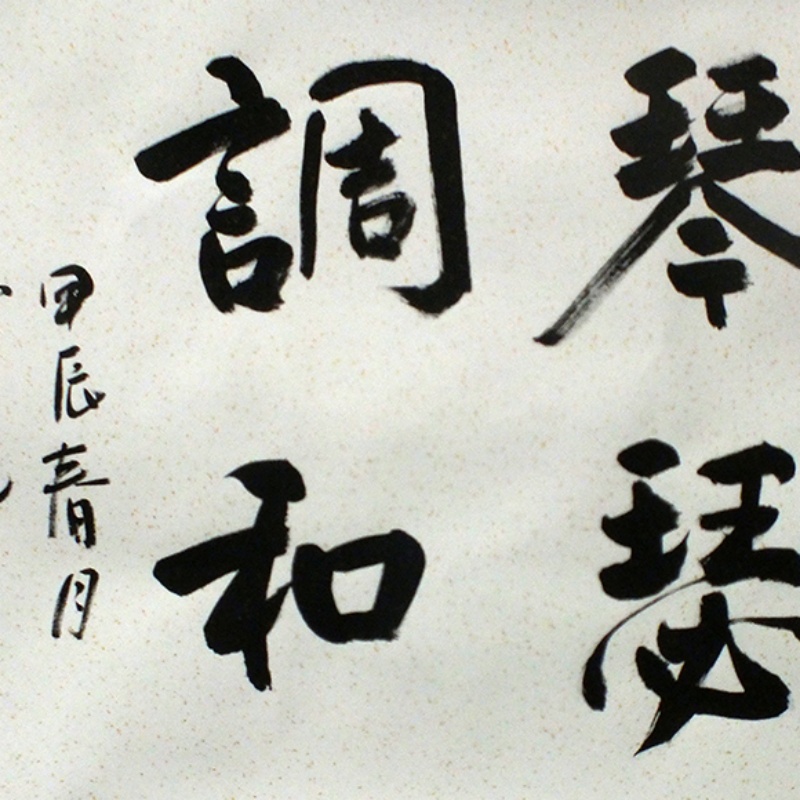 琴瑟
調和
甲辰春月